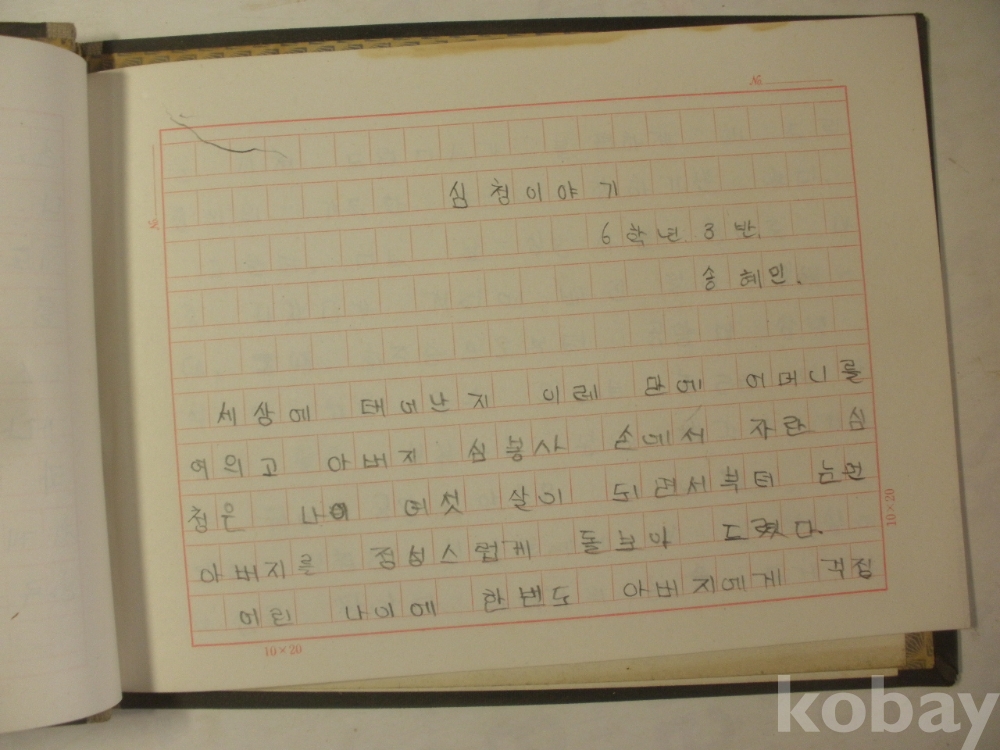 №
심청이야기
6학년 3반.
송혜인.
세상에 태어난지 이레 만에 어머니를
여의고 아버지 심봉사 손에서 자란 심
청은 나이 여섯 살이 되면서부터 눈먼
아버지를 정성스럽게 돌보아 드렸다.
어린 나이에 한번도 아버지에게 걱정
10×20
10×20
kobay